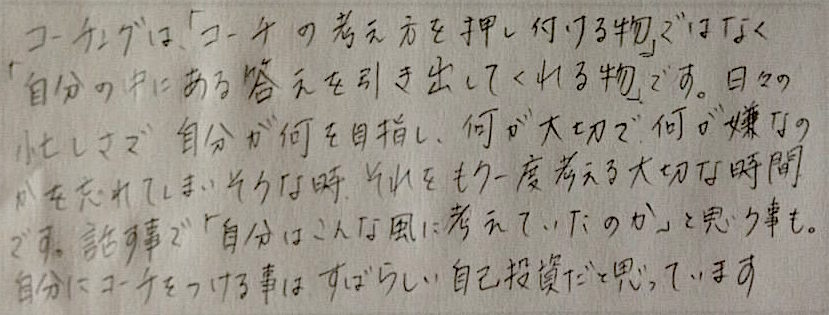 コーチングは、「コーチの考え方を押し付ける物」ではなく
「自分の中にある答えを引き出してくれる物」です。日々の
忙しさで 自分が何を目指し、何が大切で、何が嫌なの
かを忘れてしまいそうな時、それをもう一度考える大切な時間
です。話す事で「自分はこんな風に考えていたのか」と思う事も。
自分にコーチをつける事は すばらしい自己投資だと思っています